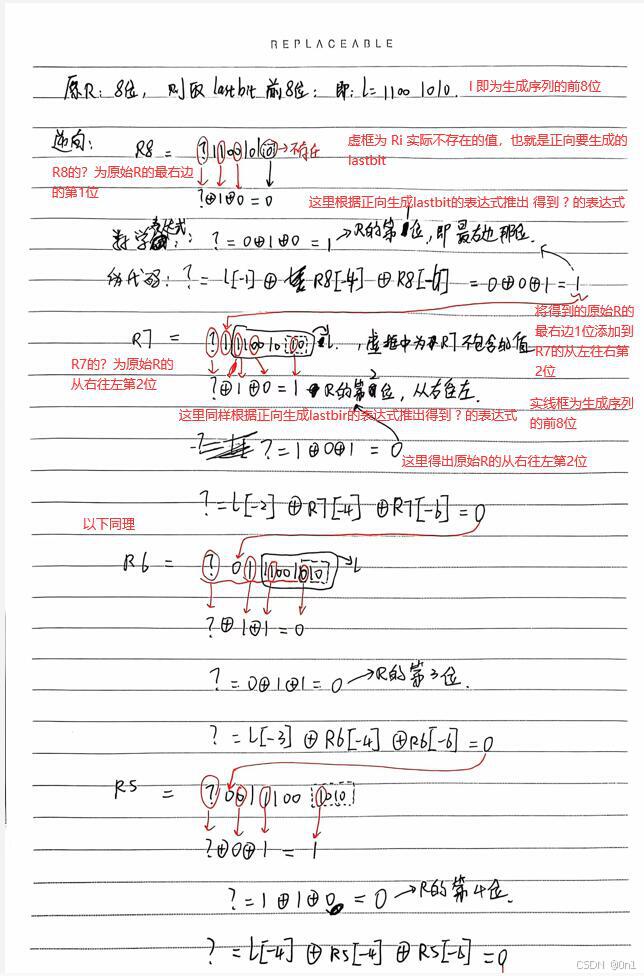 REPLACEABLE
原R：8位，则取lastbit前8位：即：l=1100 1010.
l 即为生成序列的前8位
逆向：
R8 = ?1100101 0 →不存在
虚框为 Ri 实际不存在的值，也就是正向要生成的
lastbit
R8的？为原始R的最右边
的第1位
?⊕1⊕0 = 0
这里根据正向生成lastbit的表达式推出 得到 ? 的表达式
数学表达式：? = 0⊕1⊕0 = 1 →R的第1位，即最右边那位.
伪代码：? = l[-1] ⊕ R8[-4] ⊕ R8[-6] = 0⊕0⊕1 = 1
将得到的原始R的
最右边1位添加到
R7的从左往右第
2位
R7 = ?1110010 10 l. ，虚框中为R7不包含的值
R7的? 为原始R的
从右往左第2位
?⊕1⊕0 = 1 R的第2位，从右往左.
这里同样根据正向生成lastbir的表达式推出得到 ? 的表达式
实线框为生成序列
的前8位
? = 1⊕0⊕1 = 0
这里得出原始R的从右往左第2位
? = l[-2] ⊕R7[-4] ⊕R7[-6] = 0
以下同理
R6 = ? 01 11001010 l
?⊕1⊕1 = 0
? = 0⊕1⊕1 = 0 →R的第3位.
? = l[-3] ⊕ R6[-4] ⊕R6[-6] = 0
R5 = ? 001 1100 1010
?⊕0⊕1 = 1
? = 1⊕1⊕0 = 0 →R的第4位.
? = l[-4] ⊕ R5[-4] ⊕ R5[-6] = 0
CSDN @0n1